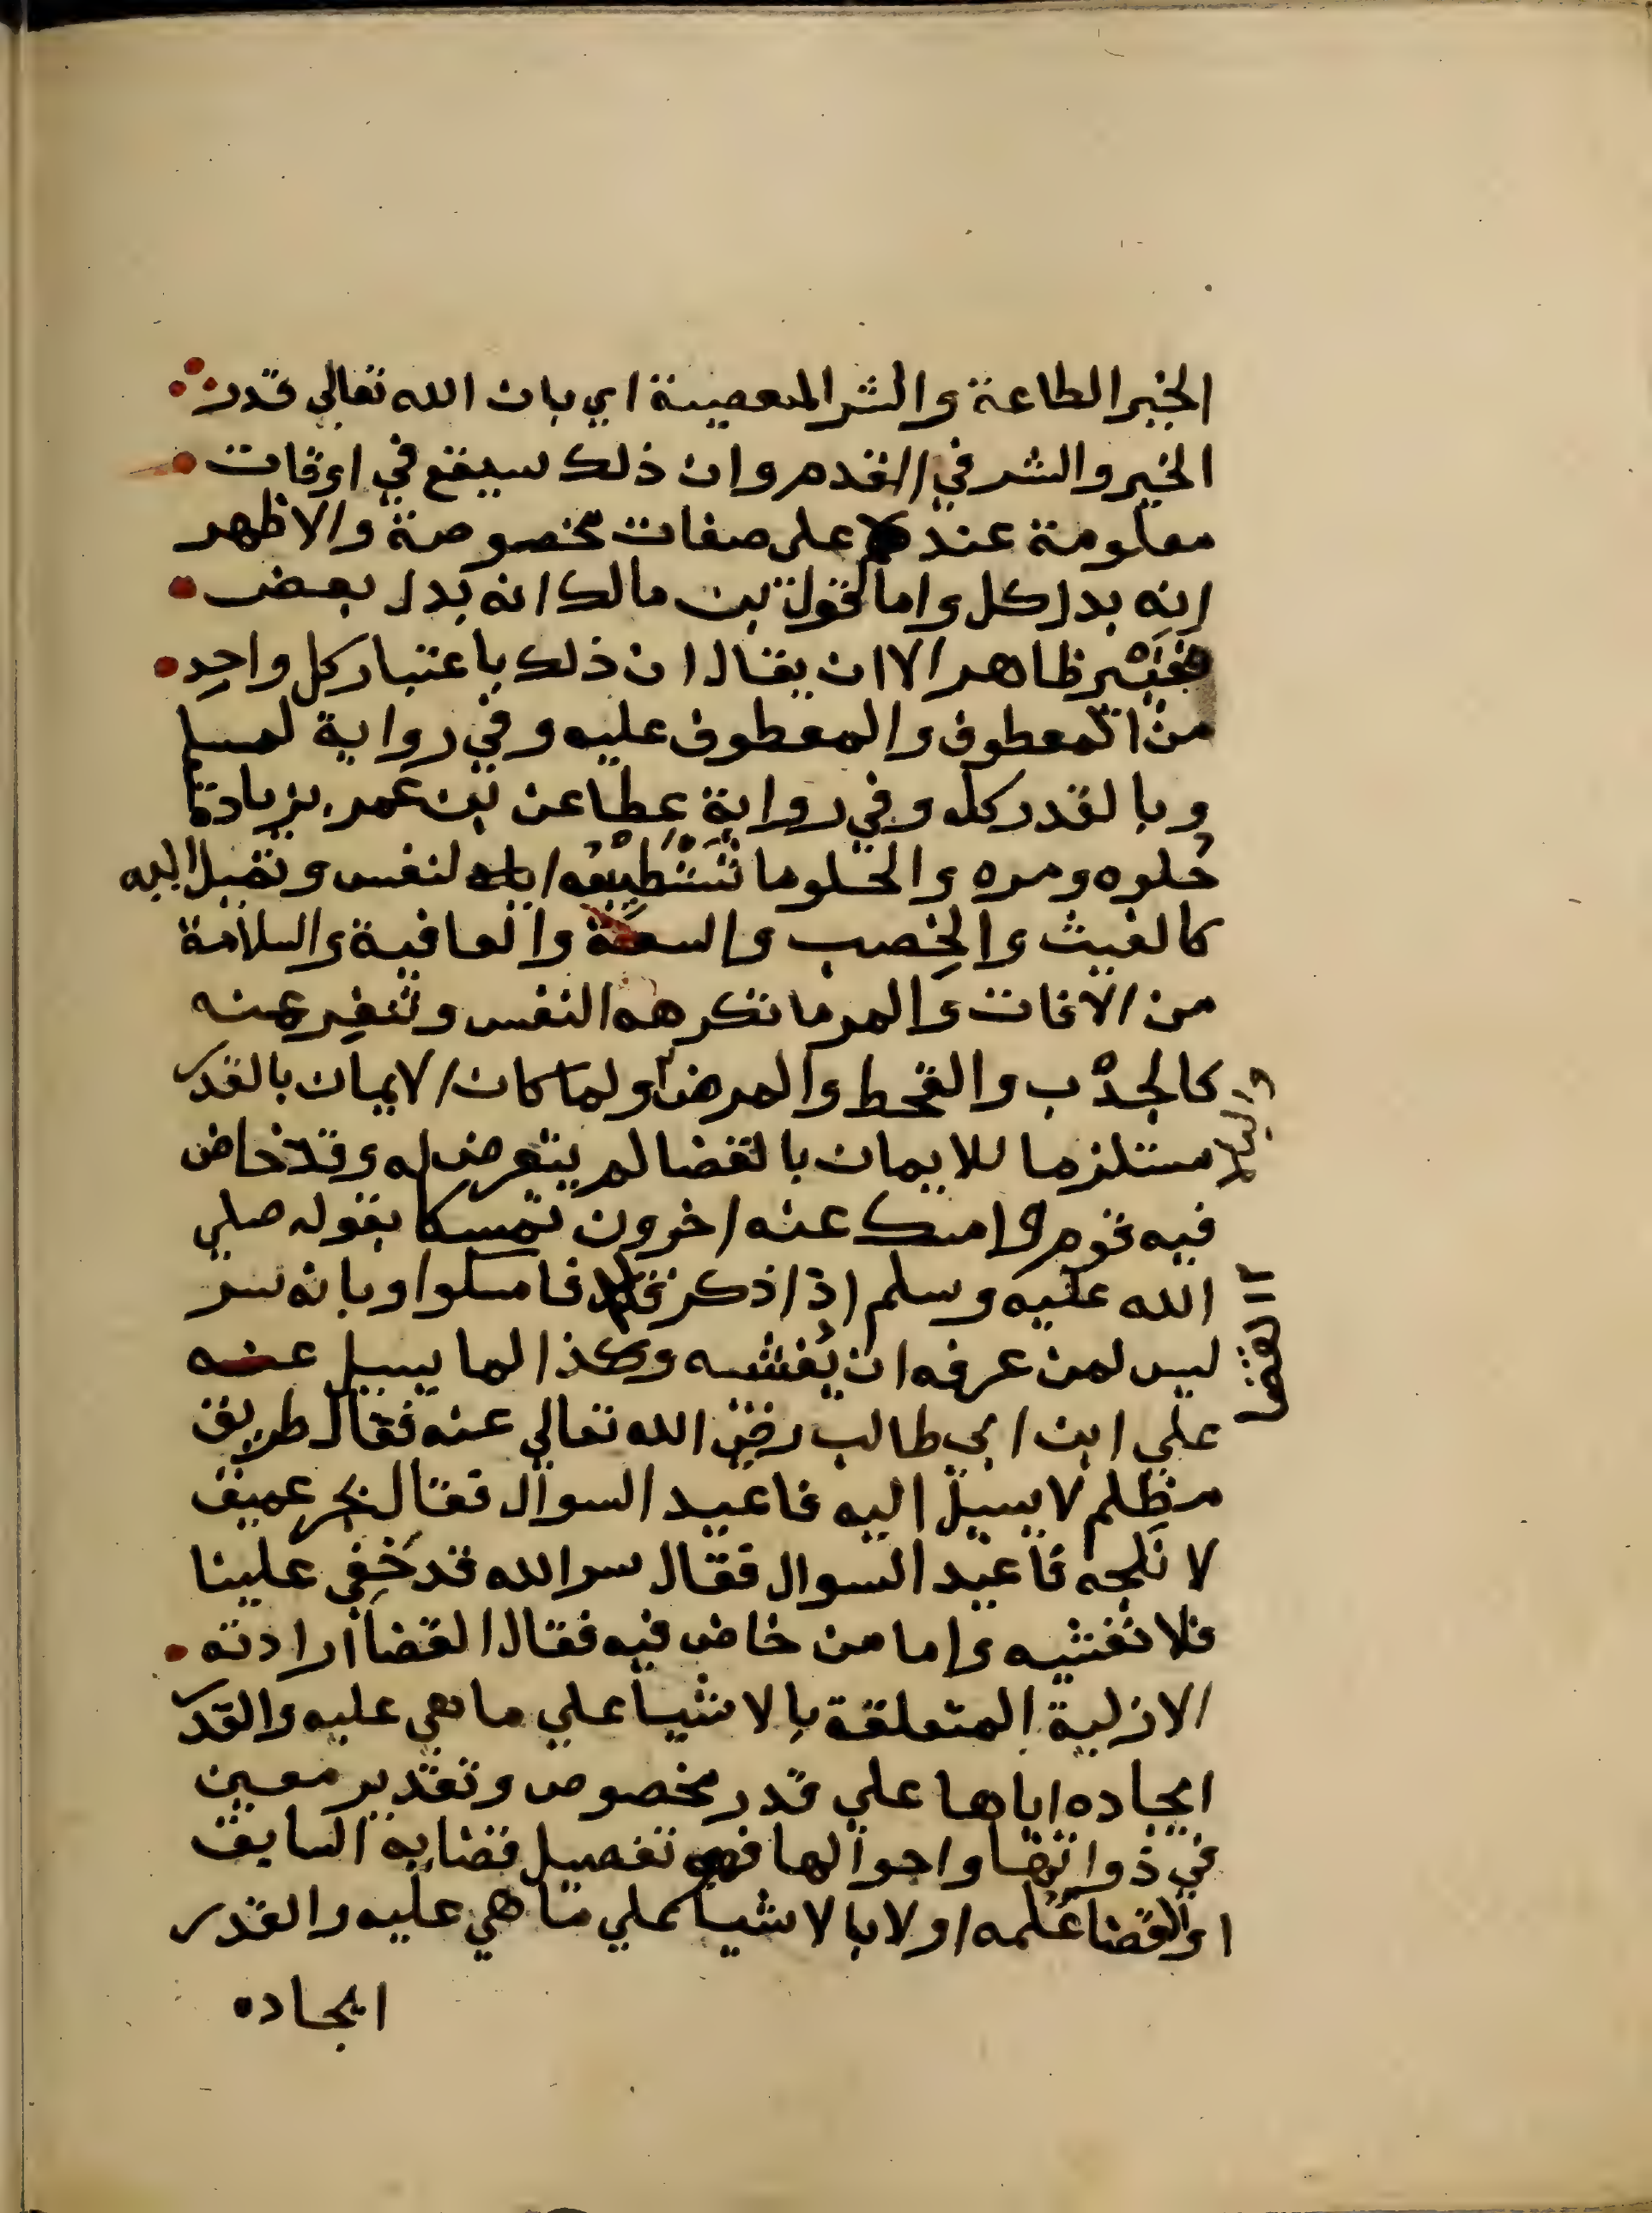 الخير الطاعة والشر المعصية اي بان الله تعالي قدر
الخير والشر في القدم وان ذلك سيقع في اوقات
معلومة عنده علي صفات مخصوصة والاظهر
انه بدل كل واما لقول بن مالك انه بدل بعض
فغير ظاهر الا ان يقال ان ذلك باعتبار كل واحد
من المعطوف والمعطوف عليه وفي رواية لمسلم
وبالقدر كله وفي رواية عطا عن بن عمر بزيادة
حُلوه ومره والحلو ما تَسْتَطِيْبُه لنفس وتميل اليه
كالغيث والخِصب والسعة والعافية والسلامة
من الافات والمر ما تكرهه النفس وتنفِر عنه
كالجدْب والقحط والمرض ولما كان الايمان بالقدر
مستلزما للايمان بالقضا لم يتعرض له وقد خاض
فيه قوم وامسك عنه اخرون تمسكا بقوله صلي
الله عليه وسلم اذا ذكر فامسكوا وبانه سر
ليس لمن عرفه ان يُفشيه وكذا لما يسيل عنه
علي ابن ابي طالب رضي الله تعالي عنه فقال طريق
مظلم لا يسيل اليه فاعيد السوال فقال بحر عميق
لا نلجه فاعيد السوال فقال سر الله قد خَفِي علينا
فلا نفشيه واما من خاض فيه فقال القضا ارادته
الازلية المتعلقة بالاشيا علي ما هي عليه والقدر
ايجاده اياها علي قدر مخصوص وتقدير معين
في ذواتها واحوالها فهو تفصيل قضايه السابق
او القضا عُلمه اولا بالاشيا علي ما هي عليه والقدر
ايجاده
والبلا